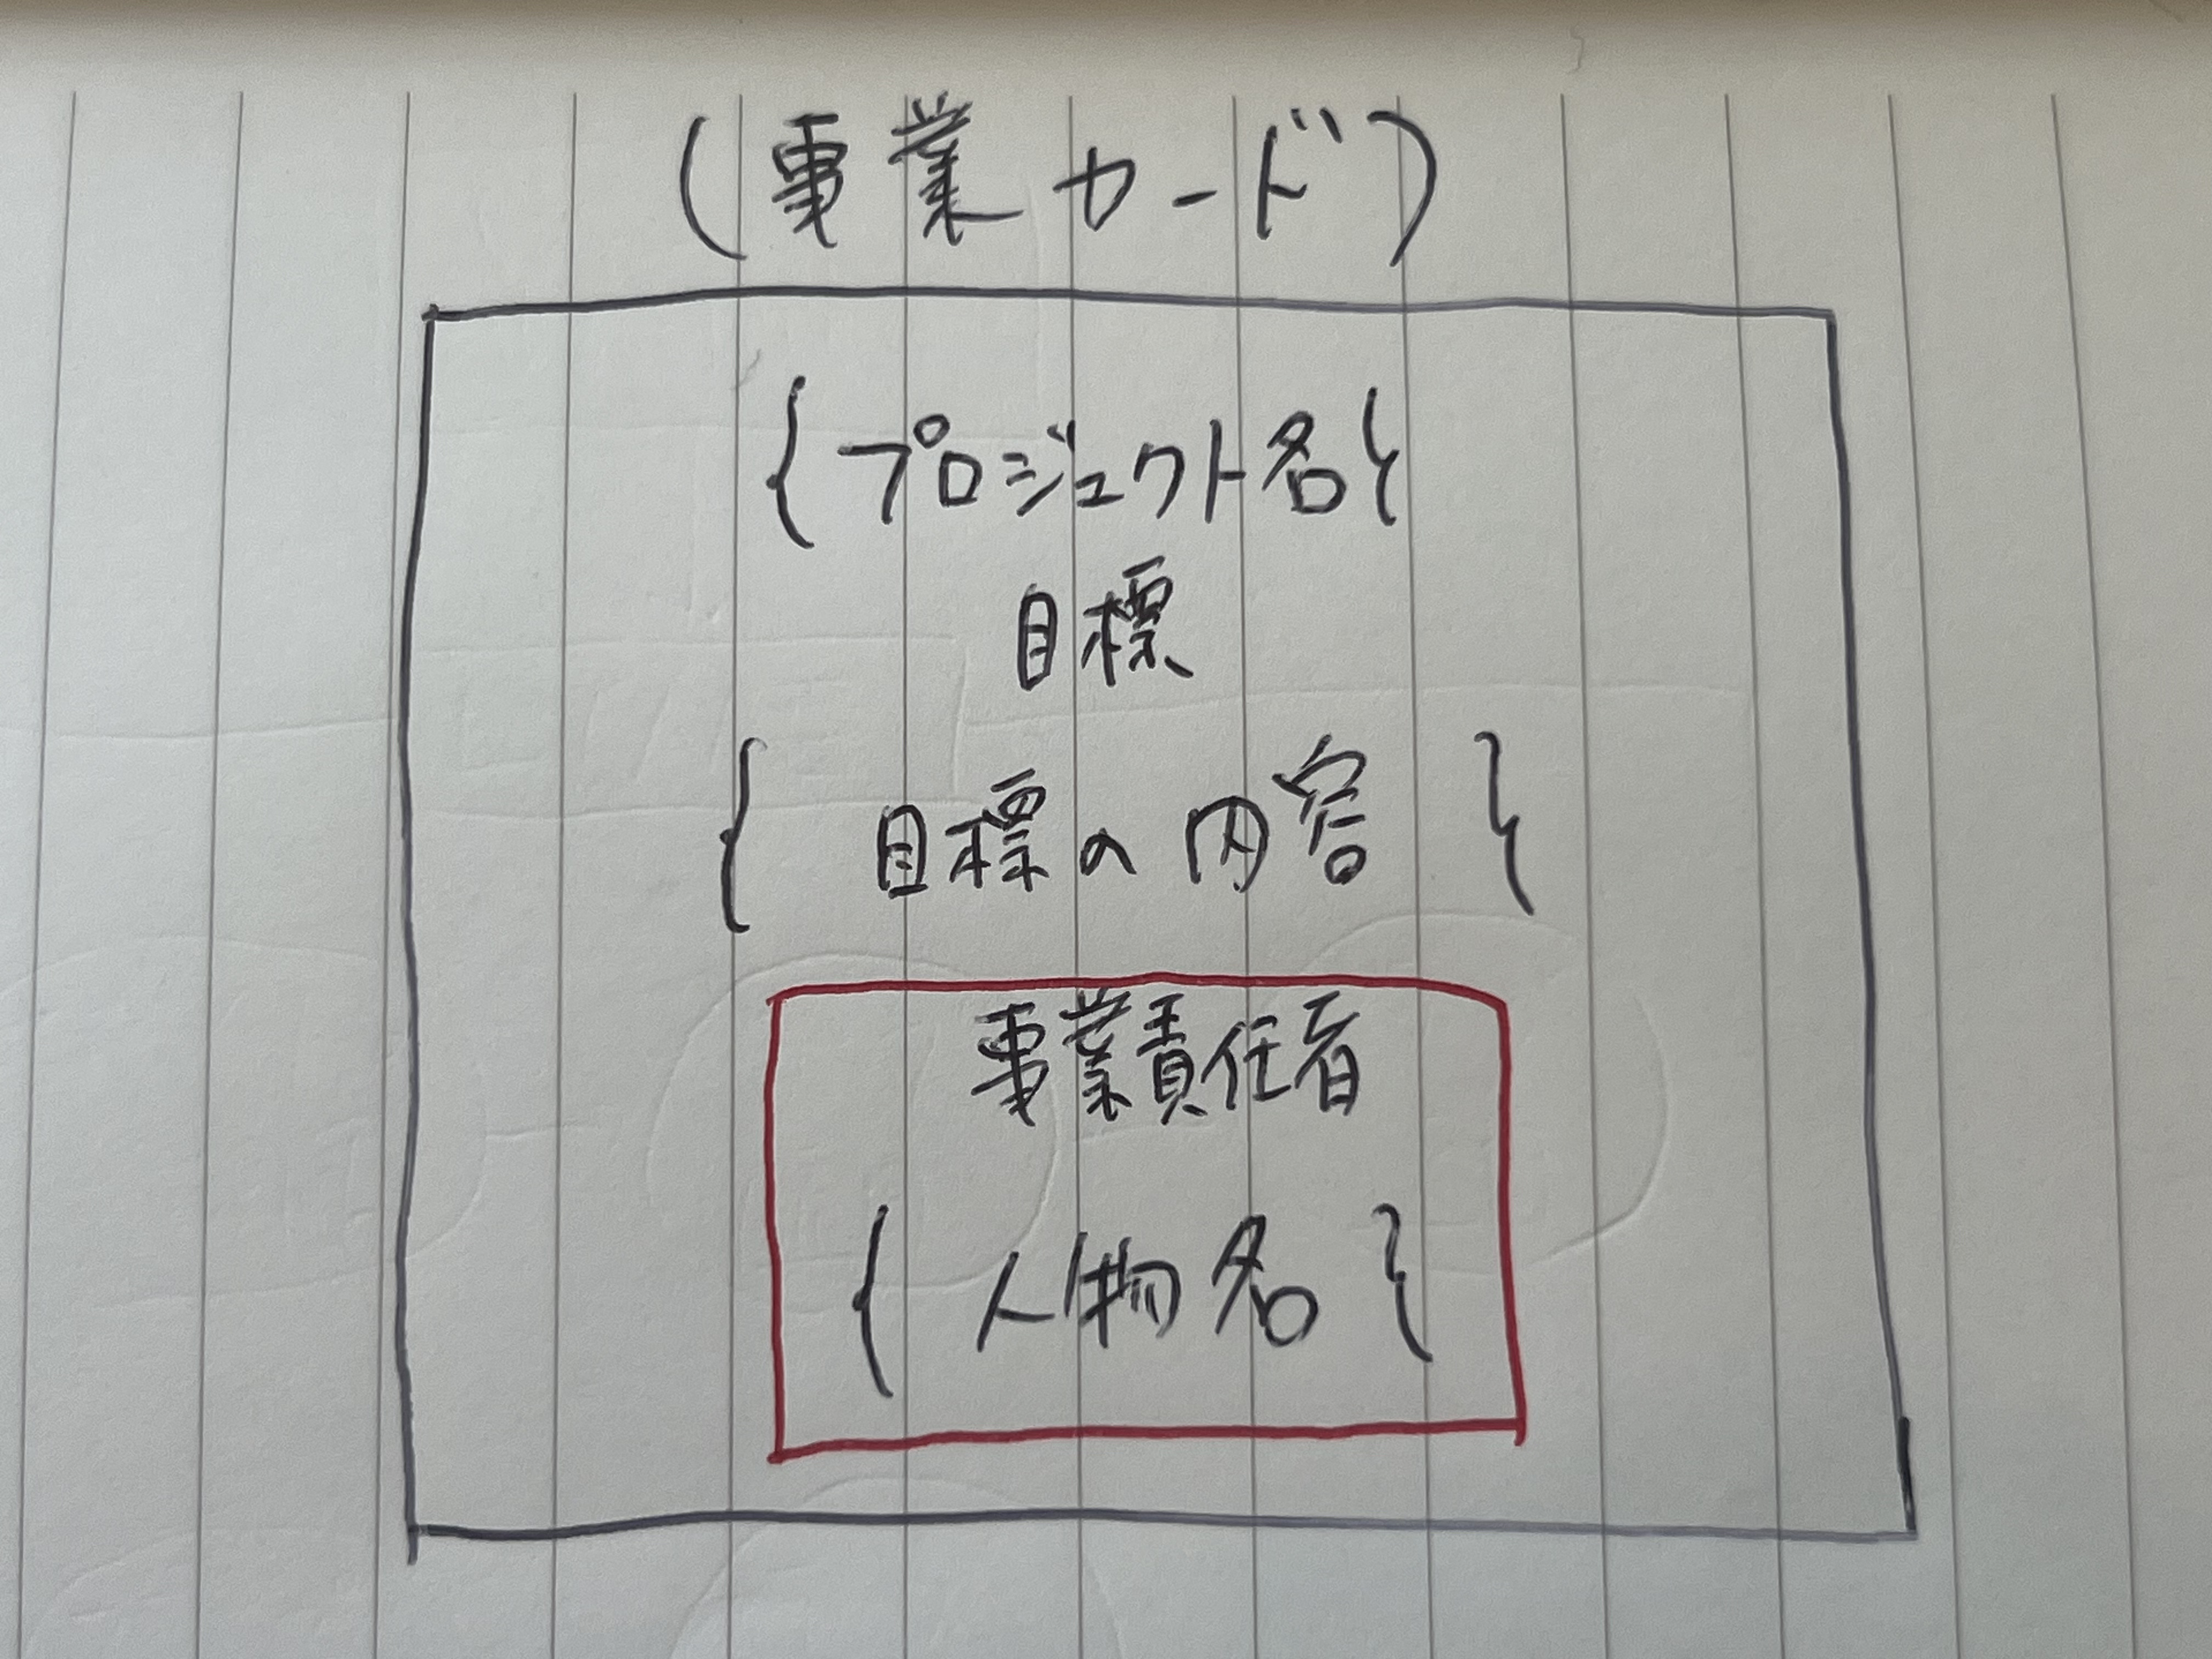 (事業カード)
{プロジェクト名}
目標
{目標の内容}
事業責任者
{人物名}